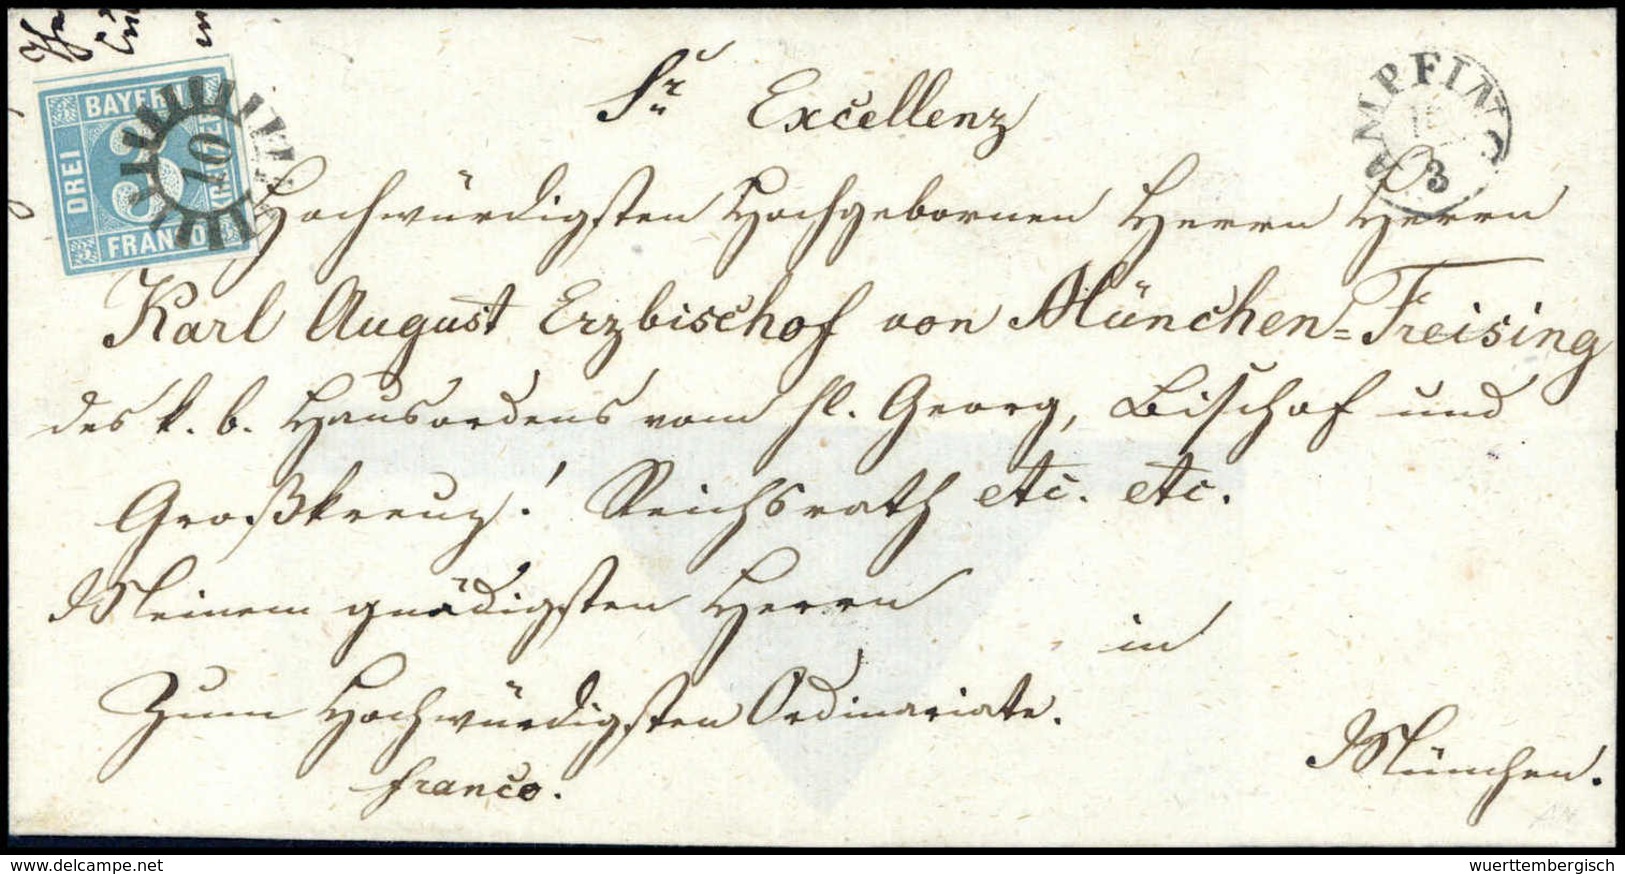 BAYERN
DREI
KREUZER
FRANCO
10
AMPFING
3
Sr Excellenz
Hochwürdigsten Hochgebornen Herrn Herrn
Karl August Erzbischof von München=Freising
des k. b. Hausordens vom hl. Georg, Bischof und
Großkreuz! Reichsrath etc. etc.
Meinem gnädigsten Herrn
in
Zum Hochwürdigsten Ordinariate.
München.
franco.
www.delcampe.net
wuerttembergisch